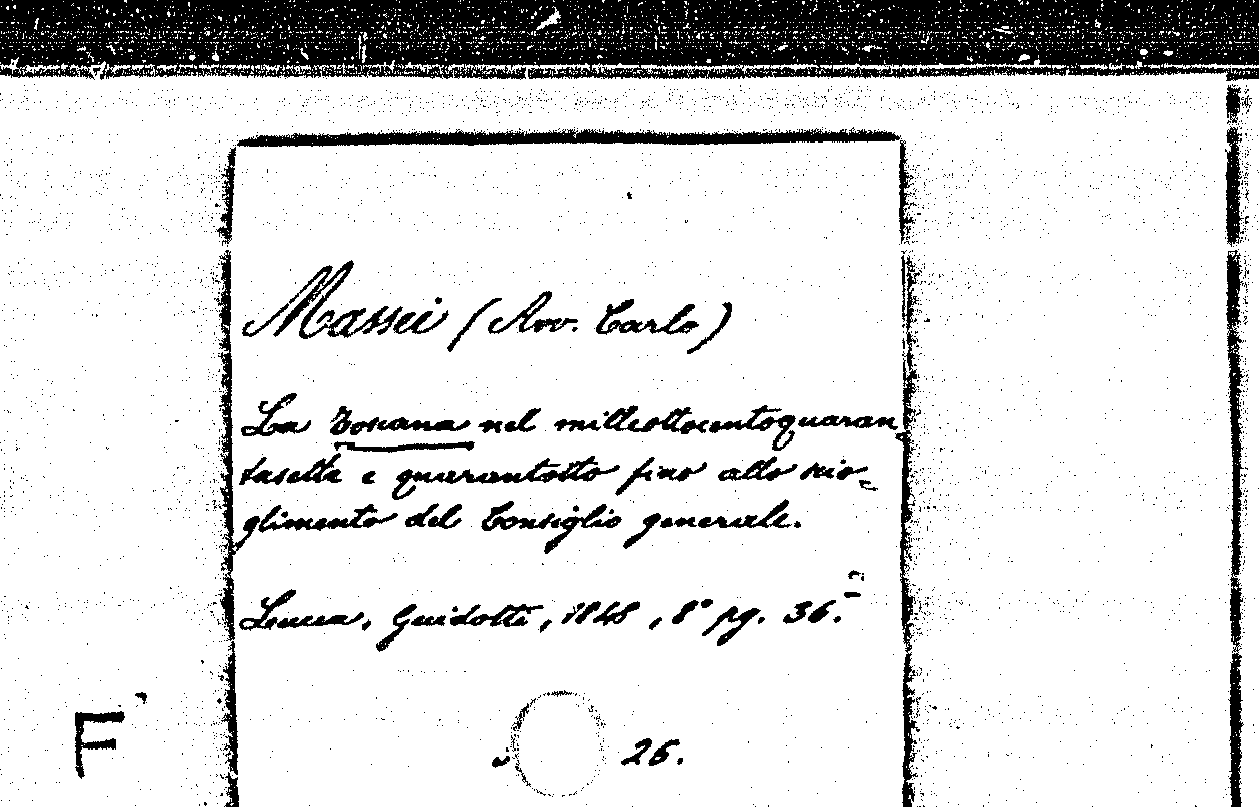 Massei (Avv. Carlo)
La Toscana nel milleottocentoquaran-
tasette e quarantotto fino allo scio-
glimento del Consiglio generale.
Lucca, Guidotti, 1848, 8° pg. 36.
26.
F